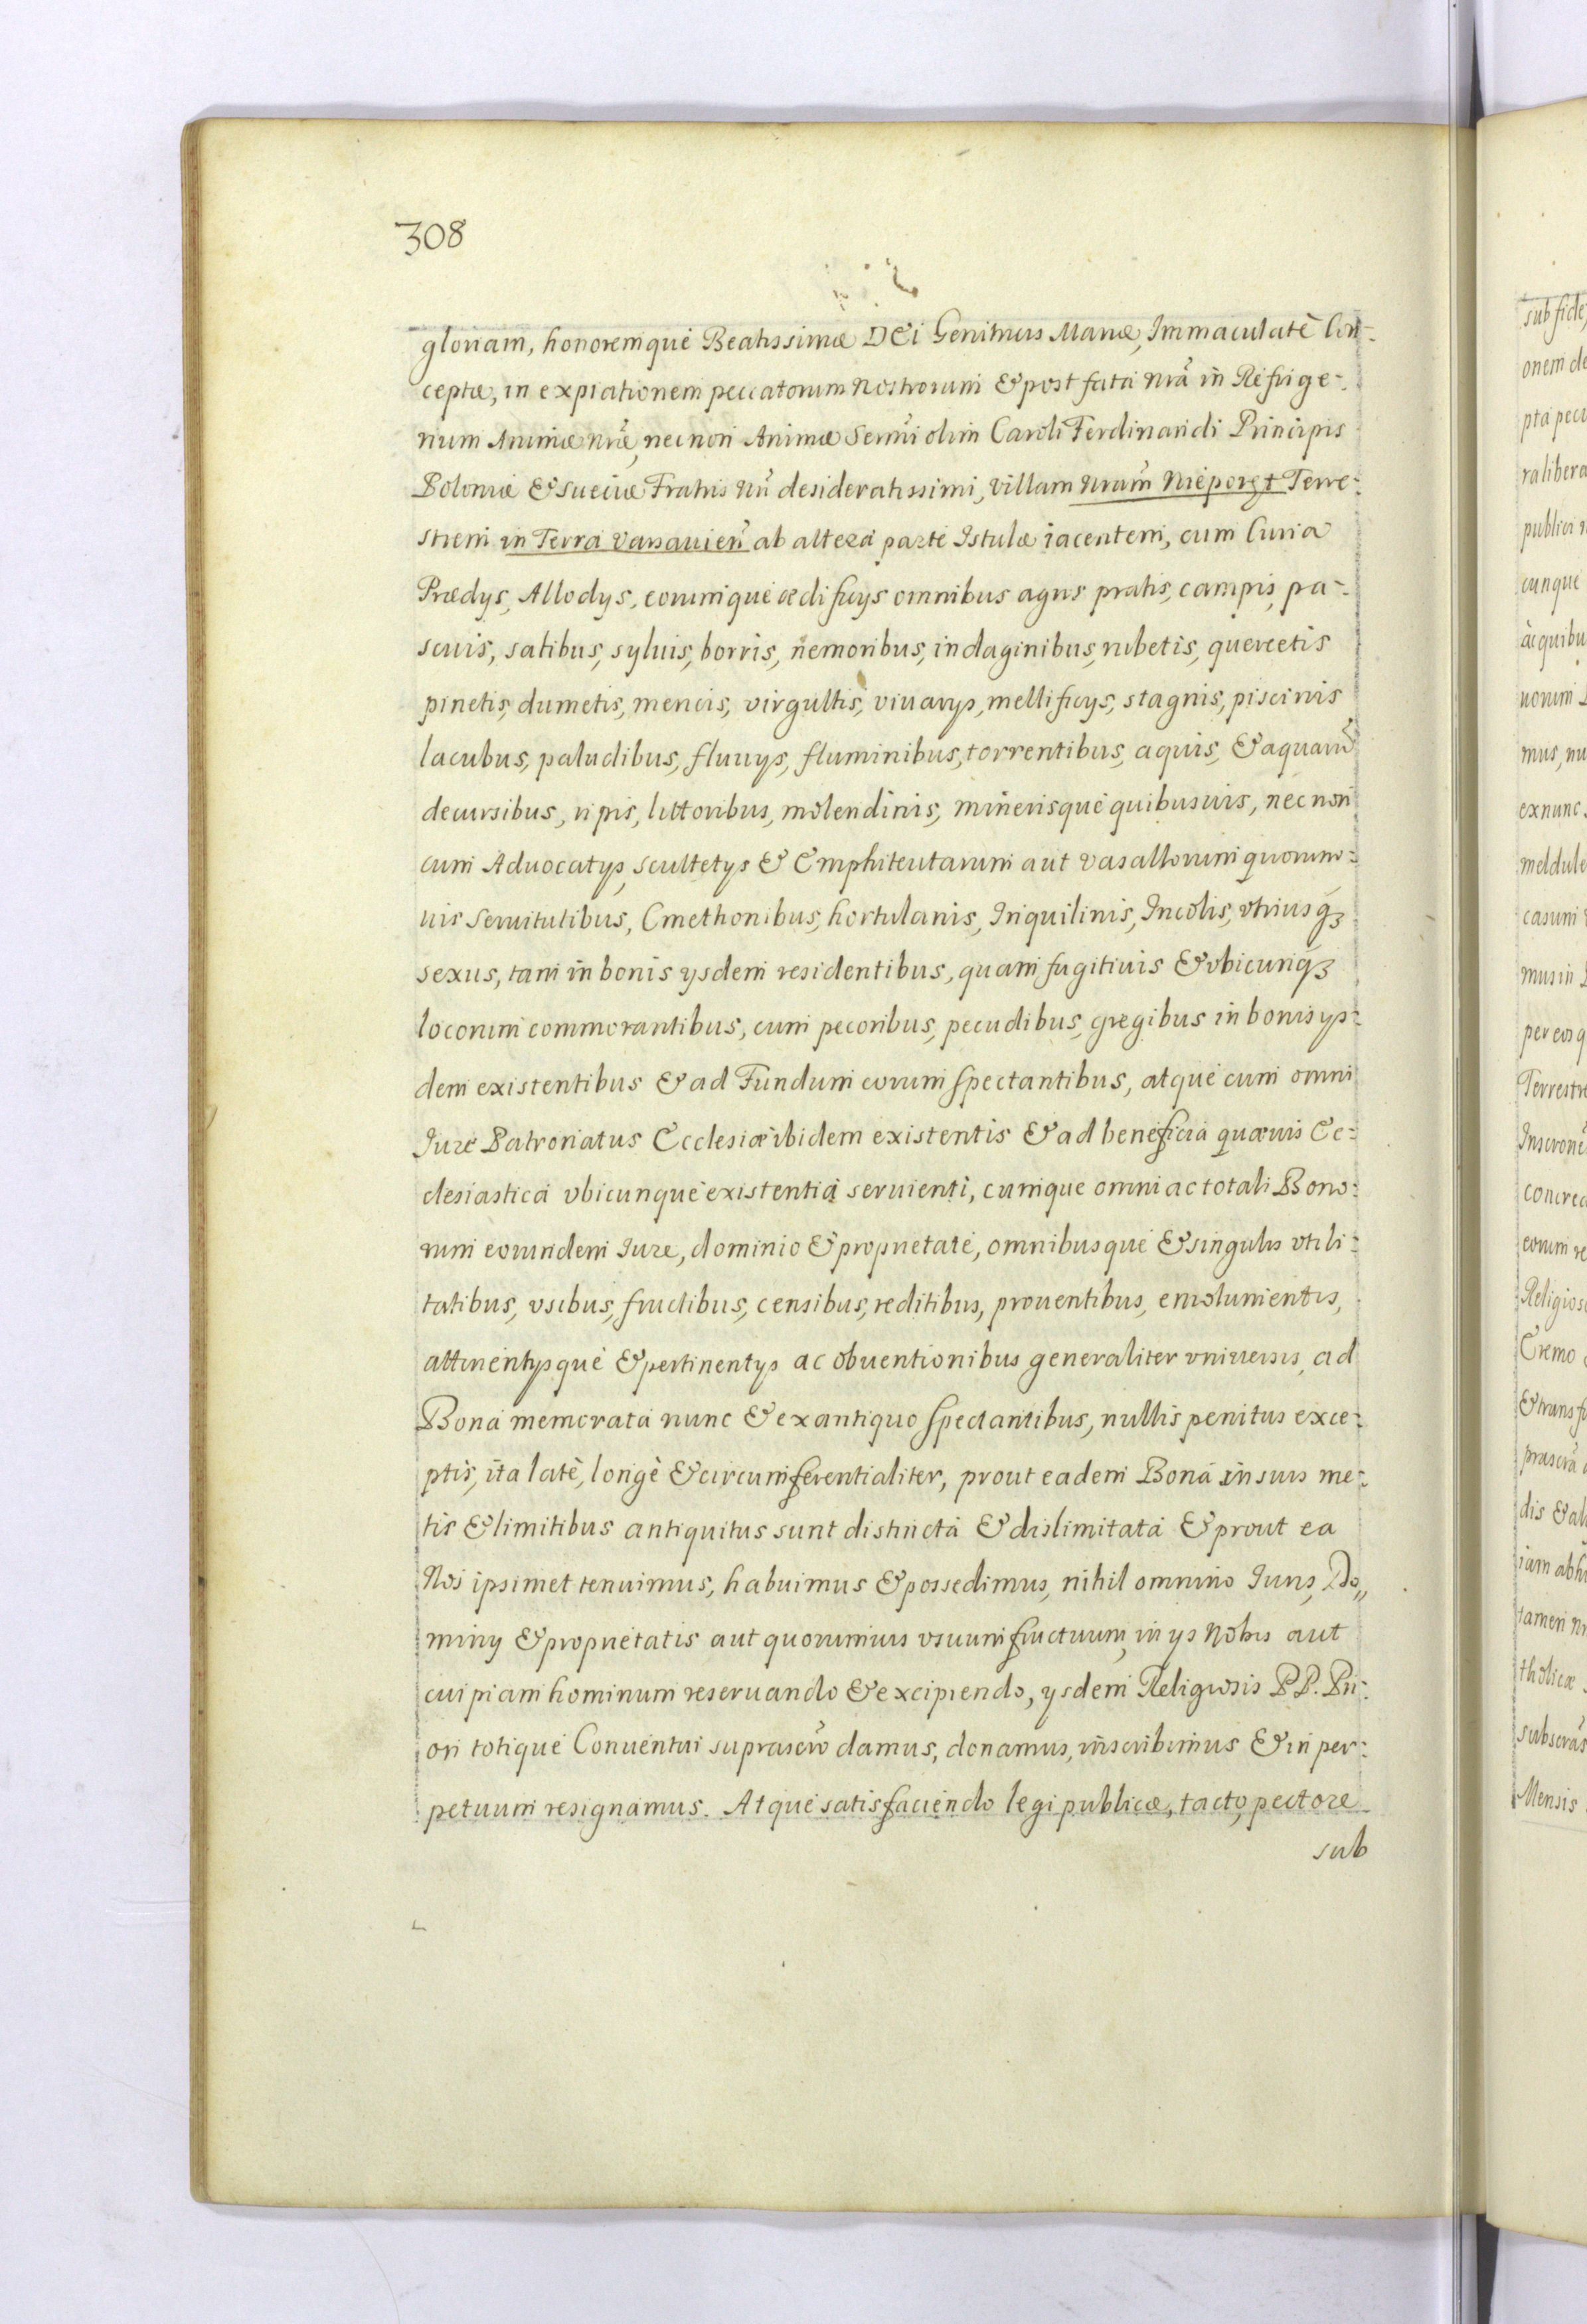 308
gloriam, honoremque Beatissimæ DEi Genitricis Mariæ, Immaculatè Con-
ceptæ, in expiationem peccatorum Nostrorum & post fata nrã in Refrige-
rium Animæ nræ, necnon Animæ Sermi olim Caroli Ferdinandi Principis
Poloniæ & Sueciæ Fratris nri desideratissimi, villam nram Nieporęt Terre-
strem in Terra Varsavien ab altera parte Istulæ iacentem, cum Curia
Prædys, Allodys, eorumque ædificys omnibus agris pratis, campis, pa-
scuis, satibus, syluis, borris, nemoribus, indaginibus, rubetis, quercetis
pinetis, dumetis, mericis, virgultis, viuarys, mellificys, stagnis, piscinis
lacubus, paludibus, fluuys, fluminibus, torrentibus, aquis, & aquarũ
decursibus, ripis, littoribus, molendinis, minerisque quibusuis, nec non
cum Aduocatys, scultetys & Emphiteutarum aut vasallorum quorum-
uis Seruitutibus, Cmethonibus, hortulanis, Inquilinis, Incolis, vtriusqȝ
sexus, tam in bonis ysdem residentibus, quam fugitiuis & vbicunqȝ
locorum commorantibus, cum pecoribus, pecudibus, gregibus in bonis ys-
dem existentibus & ad Fundum eorum spectantibus, atque cum omni
Iure Patronatus Ecclesiæ ibidem existentis & ad beneficia quæuis Ec-
clesiastica vbicunque existentia seruienti, cumque omni ac totali Bono-
rum eorundem Iure, dominio & proprietate, omnibusque & singulis vtili-
tatibus, vsibus, fructibus, censibus, reditibus, prouentibus, emolumentis,
attinentysque & pertinentys ac obuentionibus generaliter vniuersis, ad
Bona memorata nunc & ex antiquo spectantibus, nullis penitus exce-
ptis, ita latè, longè & circumferentialiter, prout eadem Bona in suis me-
tis & limitibus antiquitus sunt distincta & dislimitata & prout ea
Nos ipsimet tenuimus, habuimus & possedimus, nihil omnino Iuris, Do„
miny & proprietatis aut quorumuis vsuum fructuum, in ys Nobis aut
cuipiam hominum reseruando & excipiendo, ysdem Religiosis PP. Pri-
ori totique Conuentui suprascro damus, donamus, inscribimus & in per-
petuum resignamus. Atque satisfaciendo legi publicæ, tacto pectore
sub